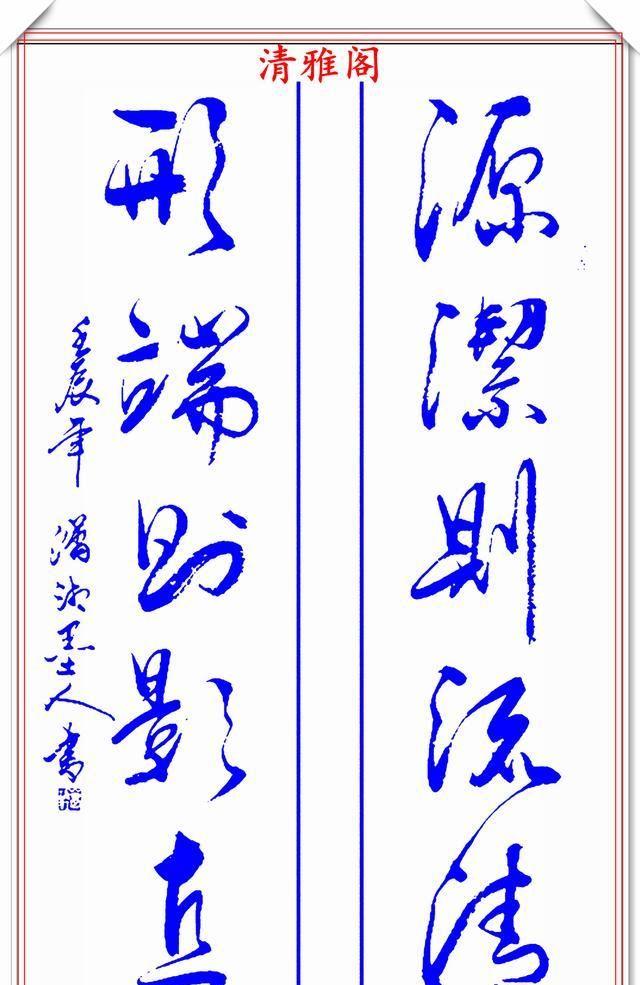 清雅阁
源潔則流清
形端則影直
壬辰年 瀟湘墨士人書